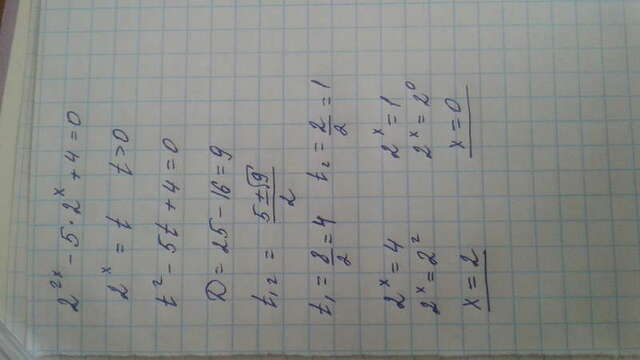 2^{2x} - 5 · 2^x + 4 = 0
2^x = t t > 0
t^2 - 5t + 4 = 0
D = 25 - 16 = 9
t_{1,2} = \frac{5 ± √9}{2}
t_1 = \frac{8}{2} = 4 t_2 = \frac{2}{2} = 1
2^x = 4 2^x = 1
2^x = 2^2 2^x = 2^0
x = 2 x = 0